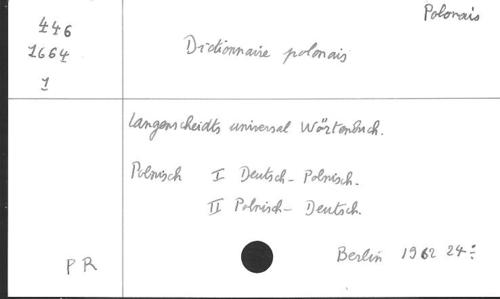 Polonais
446
1664
1
Dictionnaire polonais
Langenscheidts universal Wörtenbuch.
Polnisch I Deutsch - Polnisch.
II Polnisch - Deutsch.
Berlin 1962 24:
PR